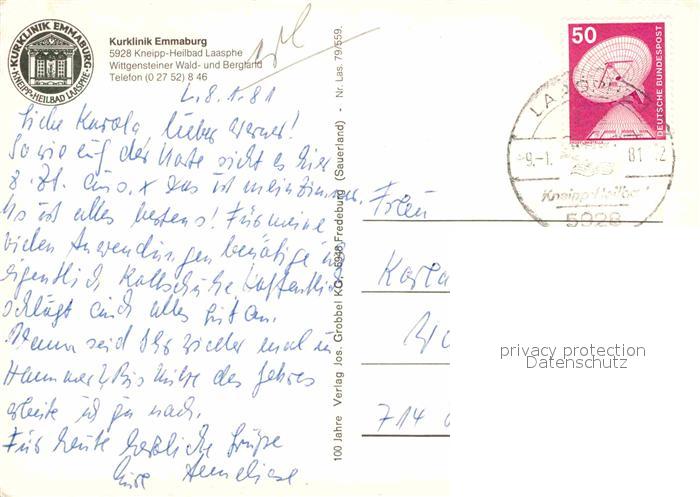 KURKLINIK EMMABURG
KNEIPP-HEILBAD LAASPHE
Kurklinik Emmaburg
5928 Kneipp-Heilbad Laasphe
Wittgensteiner Wald- und Bergland
Telefon (0 27 52) 8 46
L. 8.1.81
Liebe Karola, lieber Werner!
So wie auf der Karte sieht es hier
z. Zt. aus. x Das ist mein Zimmer.
Es ist alles bestens! Für meine
vielen Anwendungen benötige ich
eigentlich Rollschuhe. Hoffentlich
schlägt auch alles gut an.
Wann seid Ihr wieder mal in
Bis Mitte des Jahres
arbeite ich ja noch.
Für heute herzliche Grüße
Eure Anneliese.
100 Jahre Verlag Jos. Grobbel KG, 5948 Fredeburg (Sauerland) - Nr. Las. 79/559.
50
DEUTSCHE BUNDESPOST
LAAS
-9.-1. 81-12
Kneipp-Heilbad
5928
Frau
714
privacy protection
Datenschutz